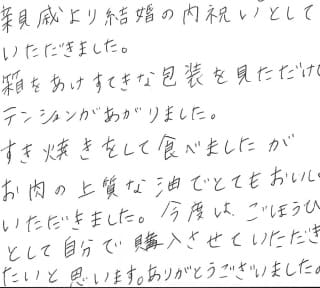 親戚より結婚の内祝いとして
いただきました。
箱をあけすてきな包装を見ただけで
テンションがあがりました。
すき焼きをして食べましたが
お肉の上質な油でとてもおいし
いただきました。今度は、ごほうび
として自分で購入させていただき
たいと思います。ありがとうございました。